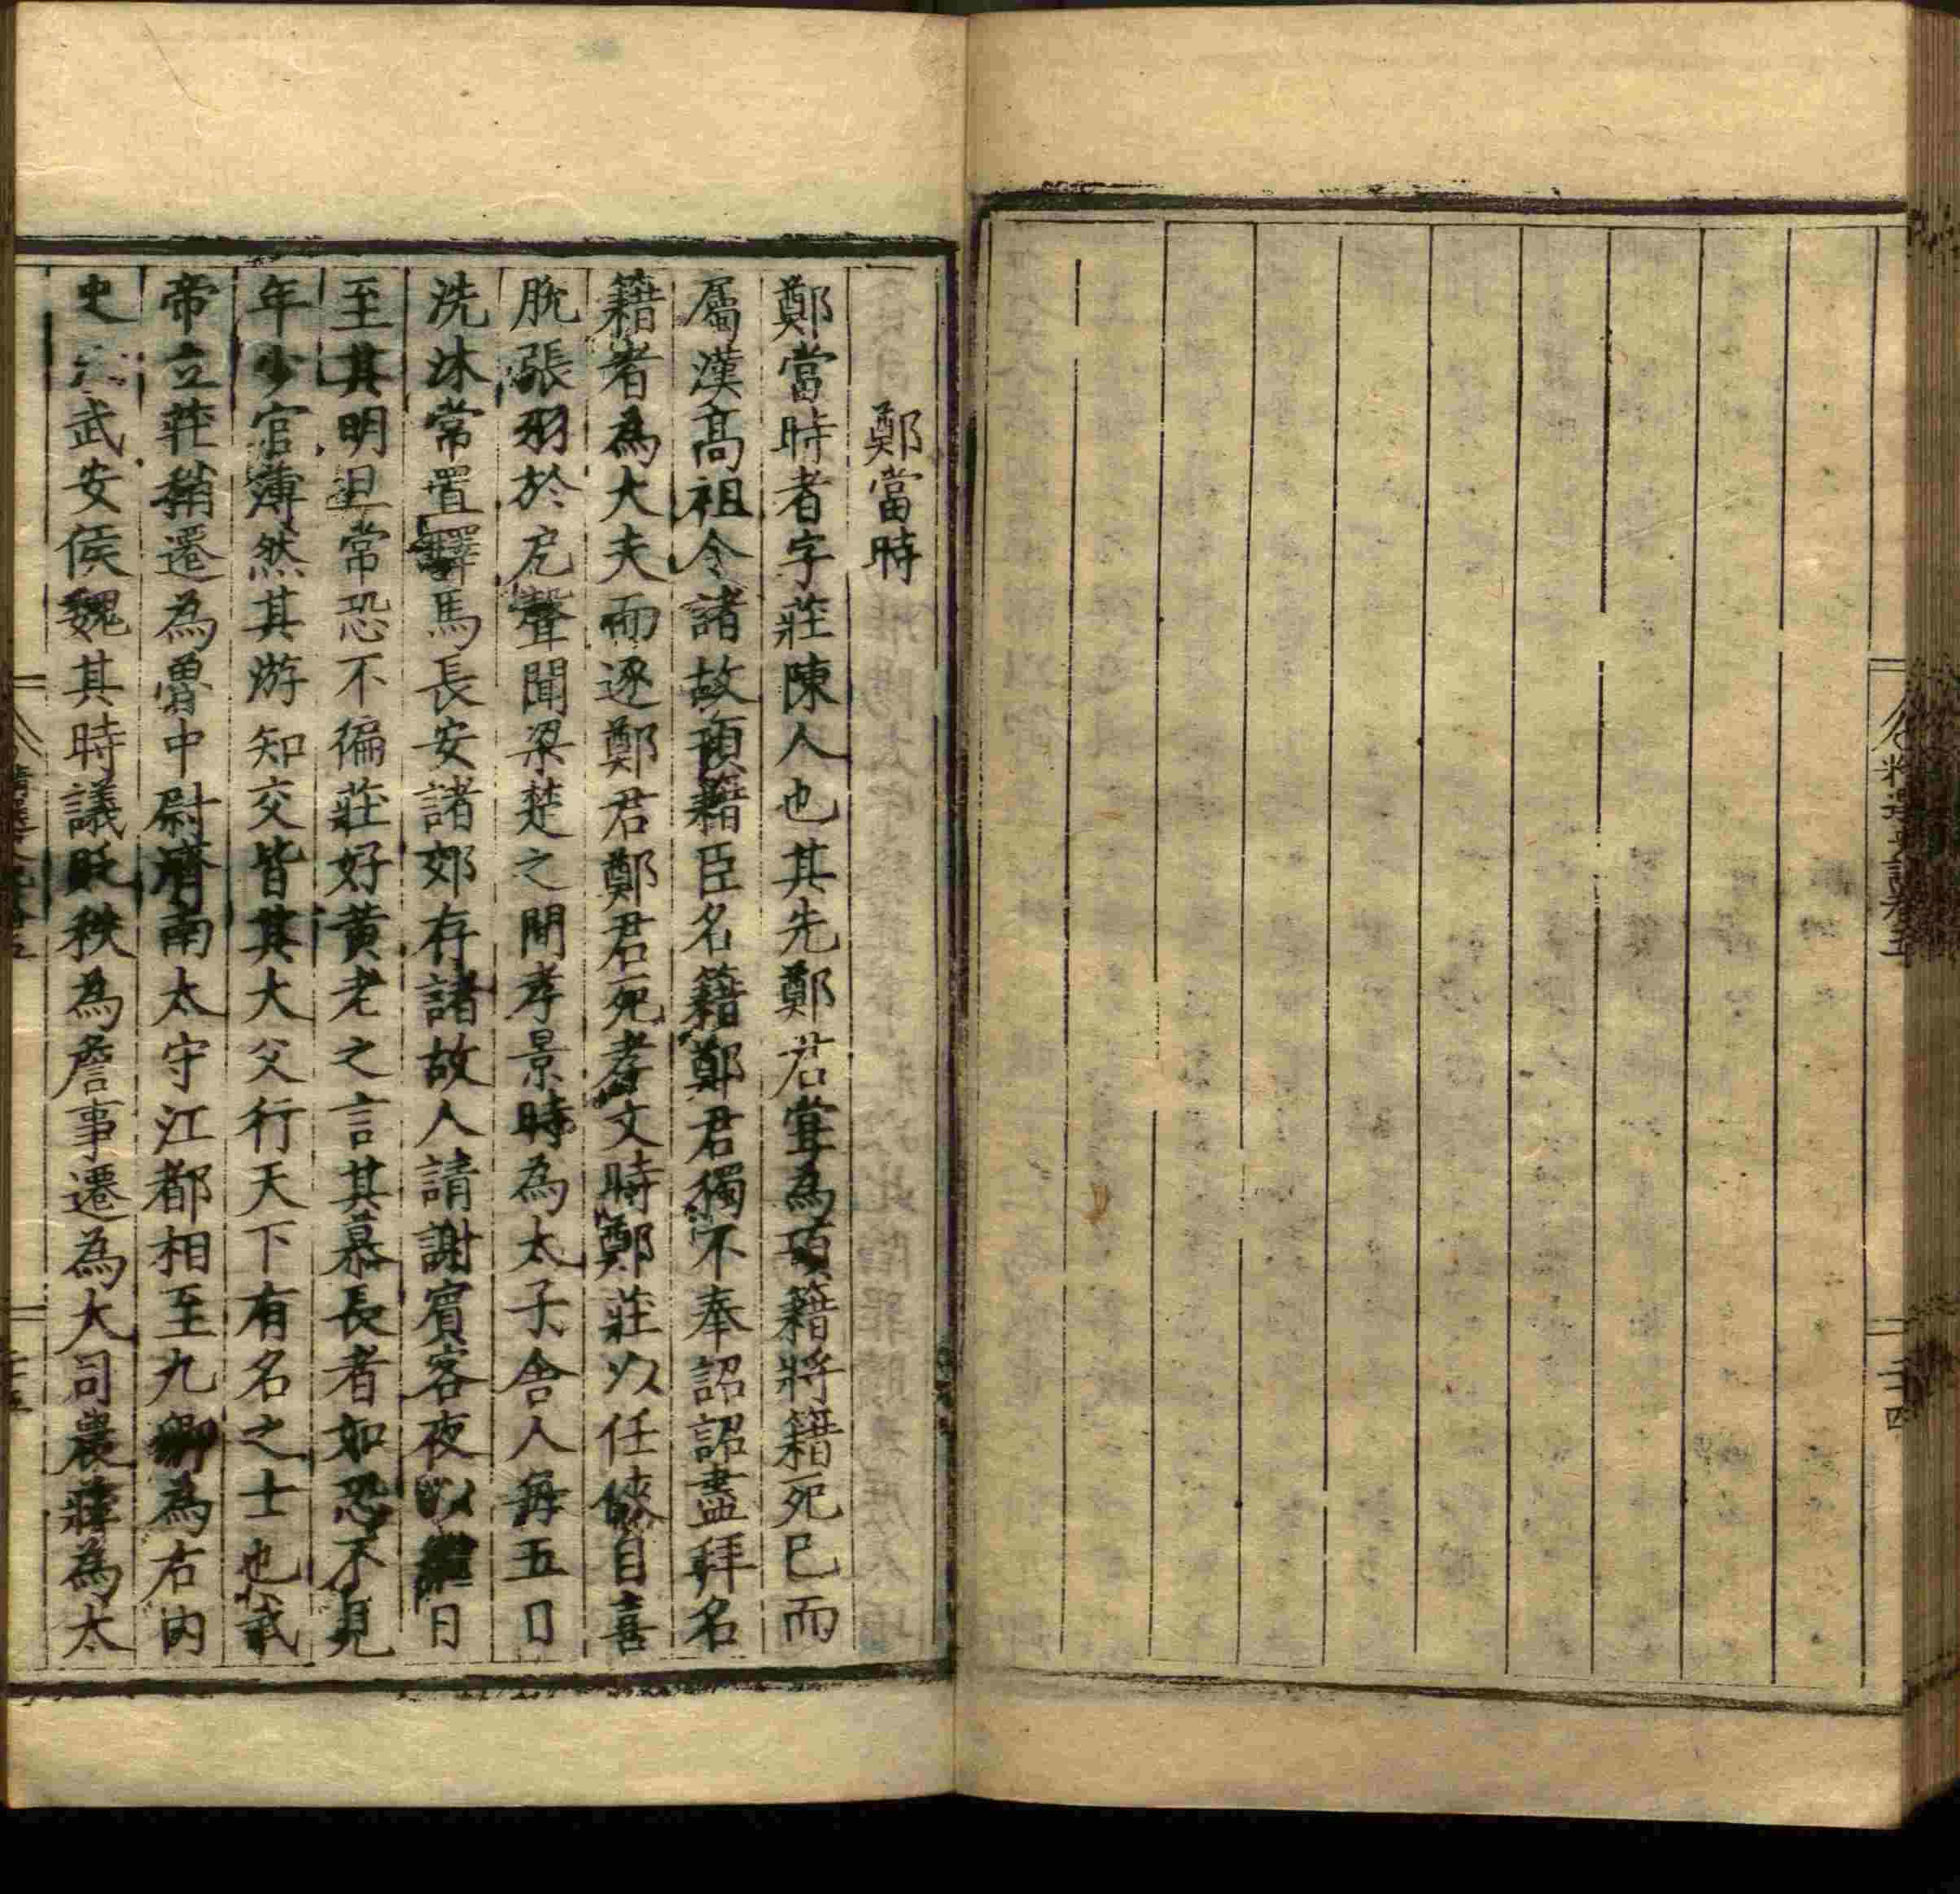 鄭當時
鄭當時者字莊陳人也其先鄭君甞為項籍將籍死已而
屬漢高祖令諸故項籍臣名籍鄭君獨不奉詔詔盡拜名
籍者為大夫而逐鄭君鄭君死孝文時鄭莊以任俠自喜
脫張羽於戹聲聞梁楚之間孝景時為太子舍人每五日
洗沐常置驛馬長安諸郊存諸故人請謝賓客夜以繼日
至其明旦常恐不徧莊好黃老之言其慕長者如恐不見
年少官薄然其游知交皆其大父行天下有名之士也武
帝立莊稍遷為魯中尉濟南太守江都相至九卿為右內
史武安侯魏其時議貶秩為詹事遷為大司農莊為太
二十四